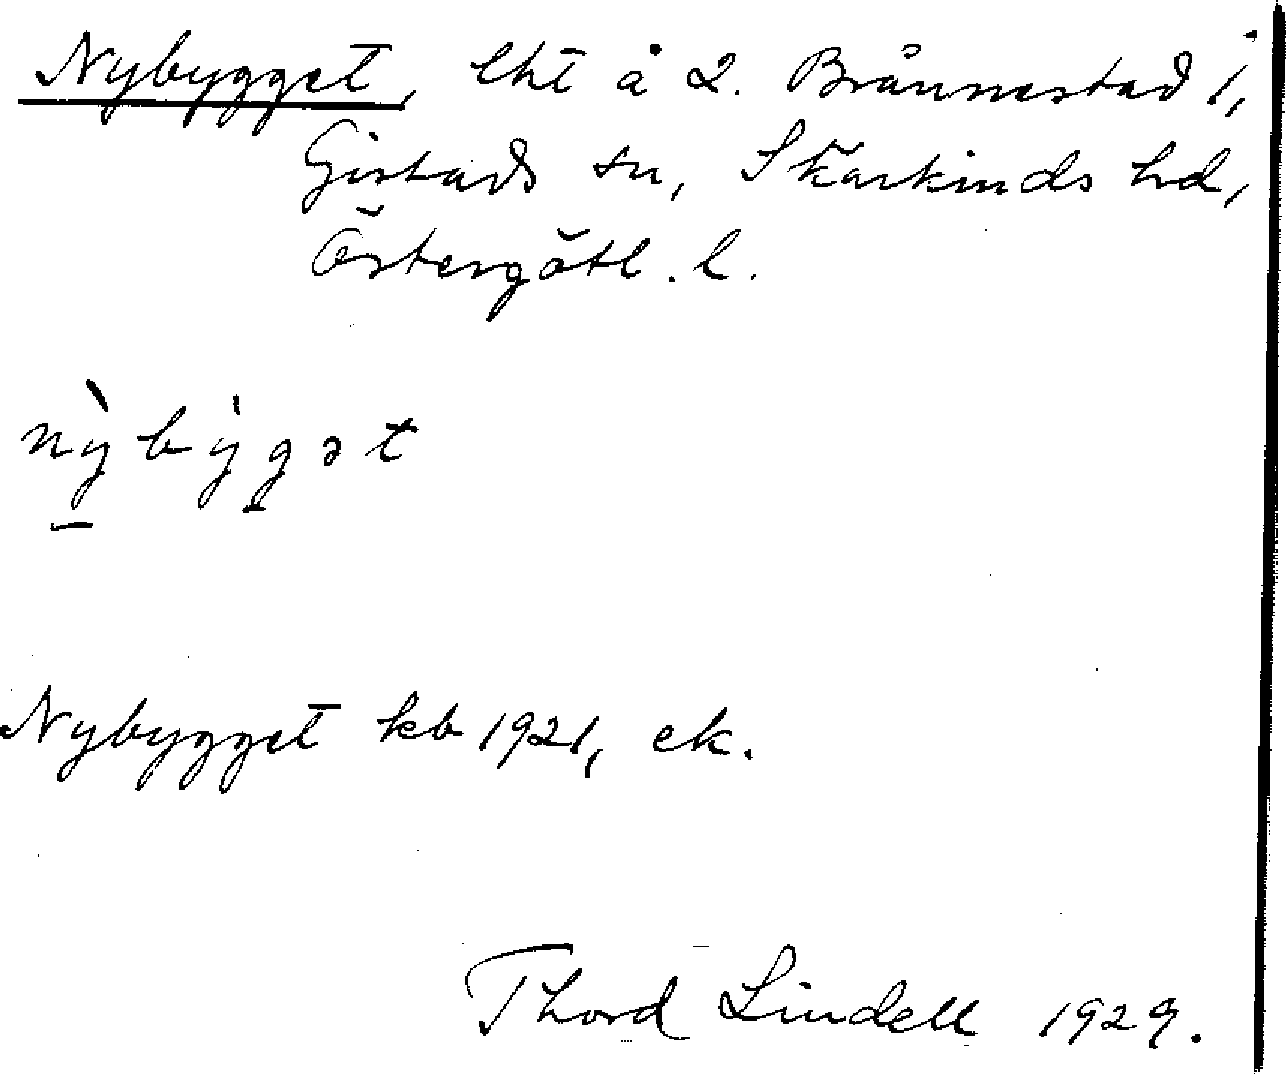 Nybygget, lht å L. Brånnestad 1,
Gistads sn, Skärkinds hd,
Östergötl. l.
nỳbýgət
Nybygget kb 1921, ek.
Thord Lindell 1929.